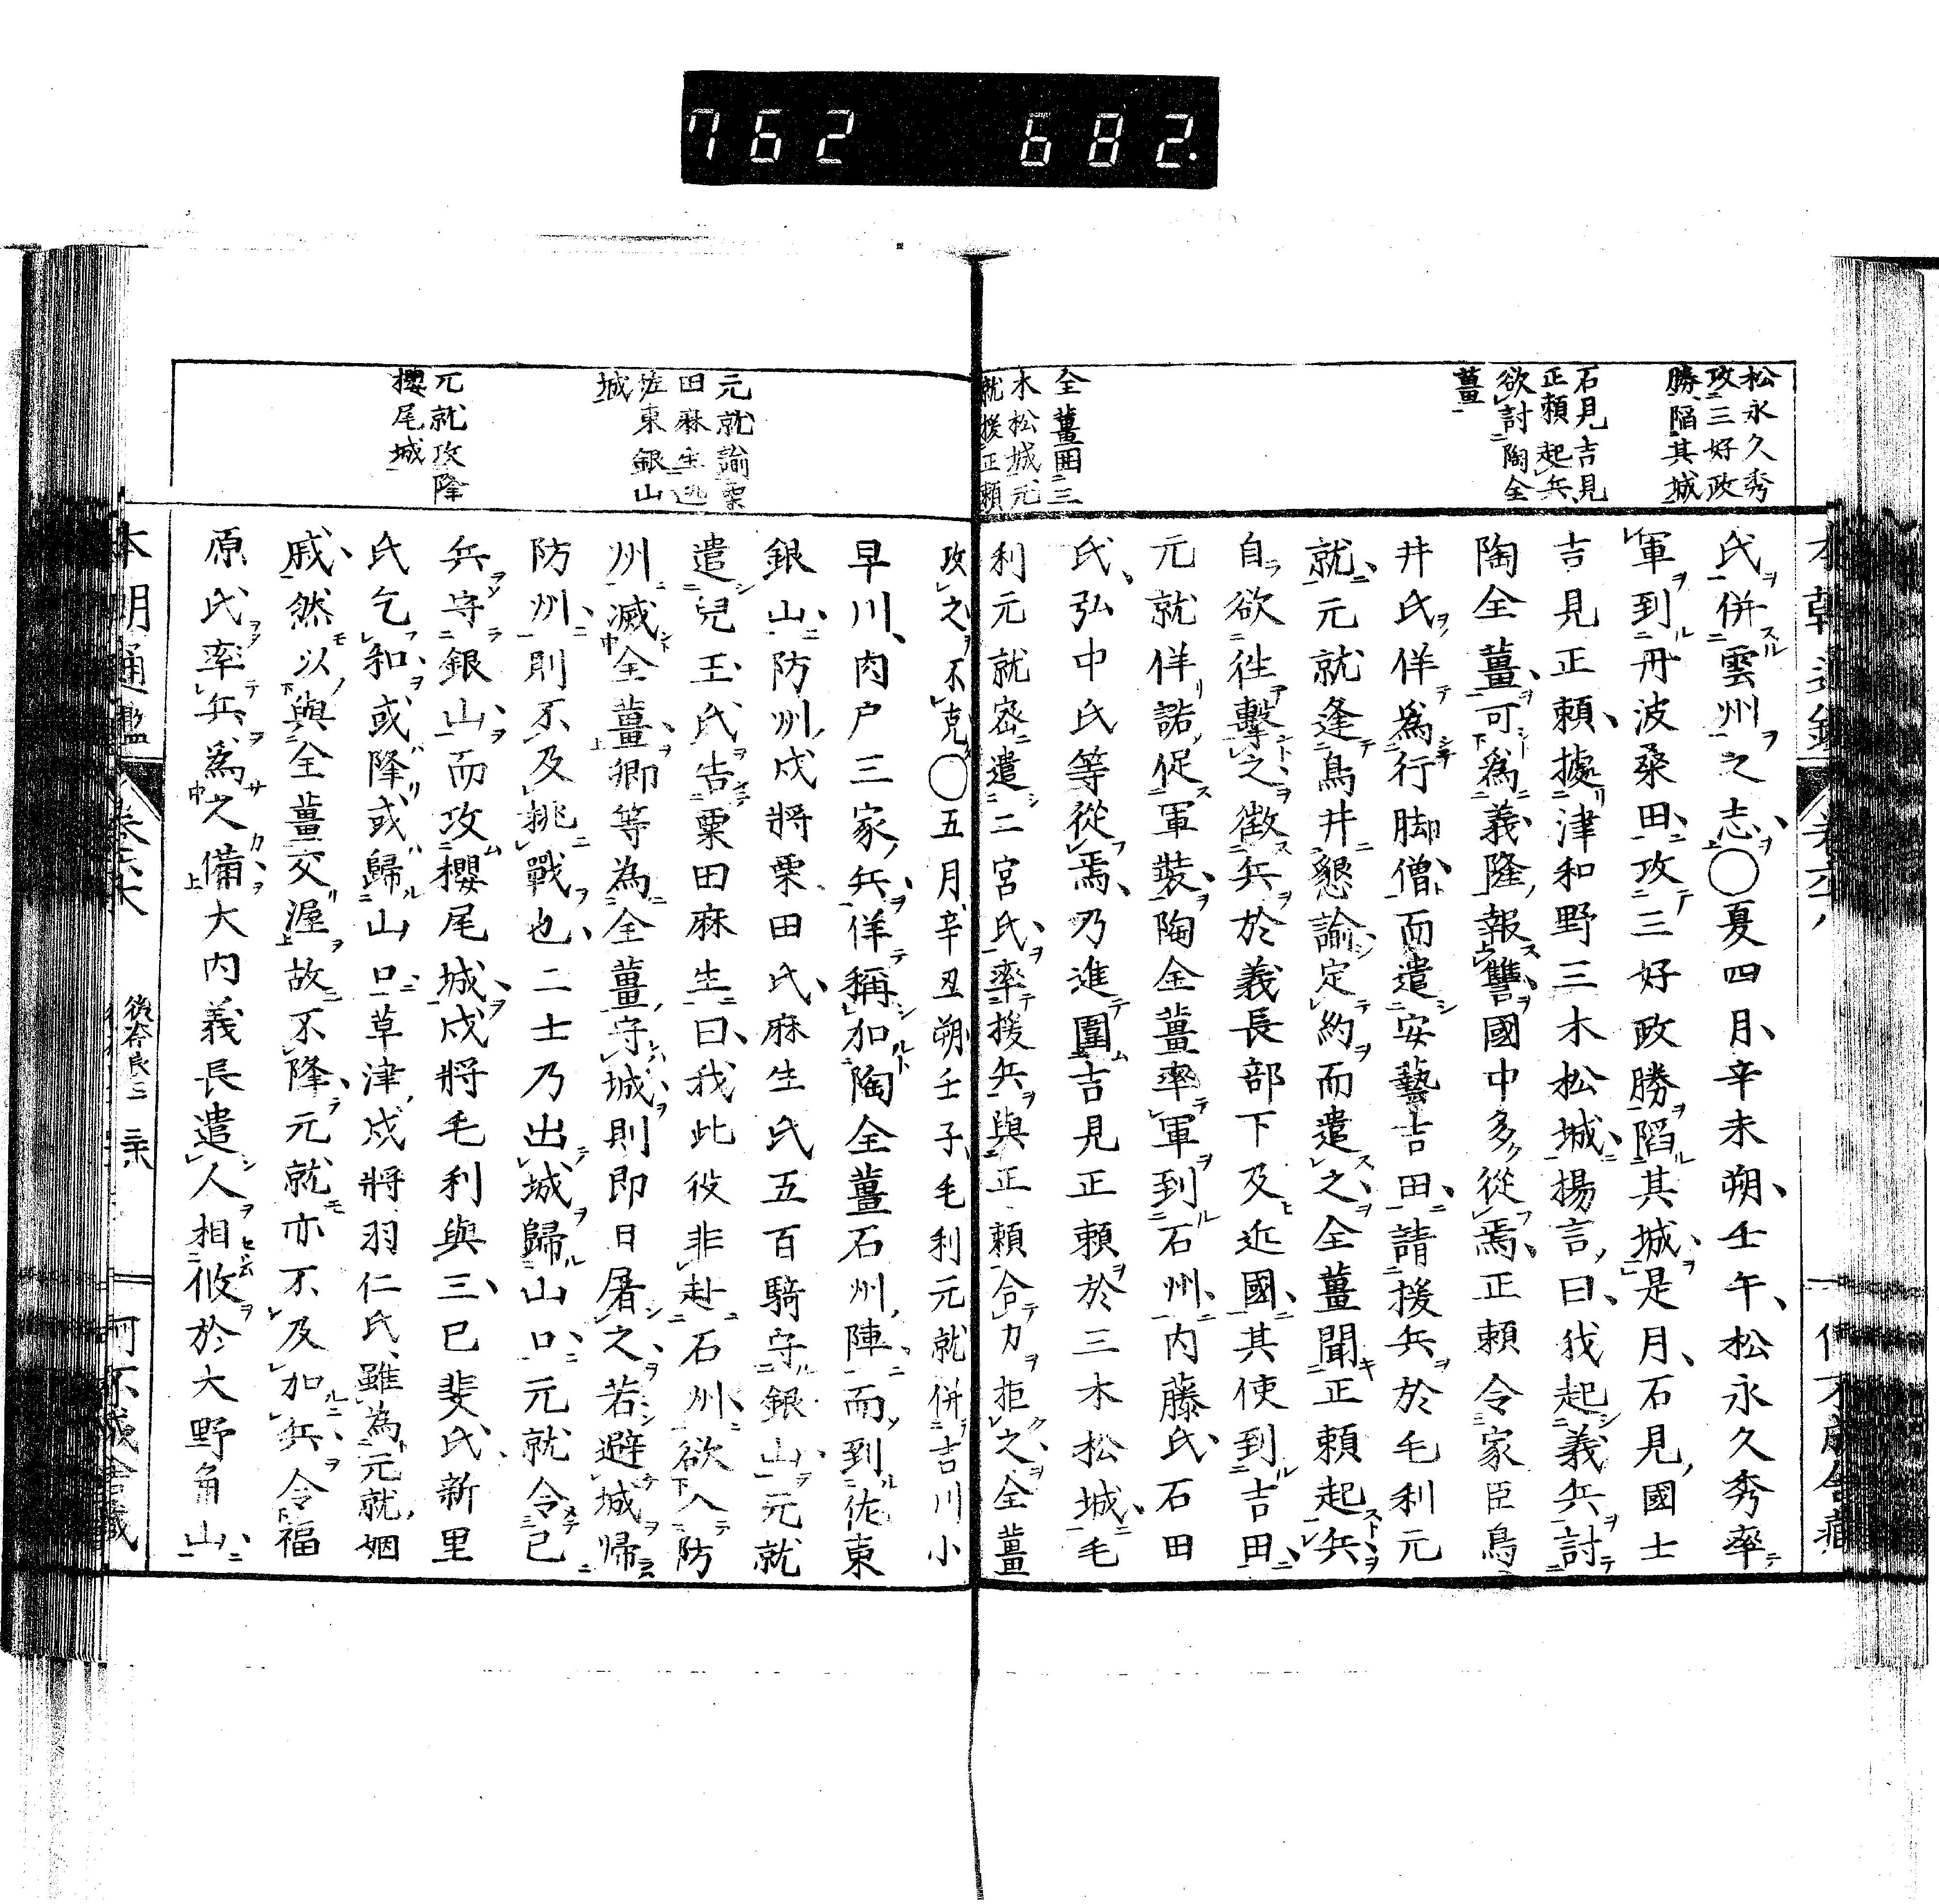 762 682.
松永久秀
攻三好政
勝陷其城
石見吉見
正賴起兵
欲討陶全
薑
全薑囲三
木松城元
就援正賴
氏併雲州之志〇夏四月辛未朔壬午松永久秀率
軍到丹波桑田攻三好政勝陷其城是月石見國士
吉見正賴據津和野三木松城揚言曰我起義兵討
陶全薑可爲義隆報讐國中多從焉正賴令家臣鳥
井氏佯爲行脚僧而遣安藝吉田請援兵於毛利元
就元就逢鳥井懇諭定約而遣之全薑聞正賴起兵
自欲往擊之徵兵於義長部下及近國其使到吉田
元就佯諾促軍裝陶全薑率軍到石州内藤氏石田
氏弘中氏等從焉乃進圍吉見正賴於三木松城毛
利元就密遣二宮氏率援兵與正賴合力拒之全薑
攻之不克〇五月辛丑朔壬子毛利元就併吉川小
早川肉戸三家兵佯稱加陶全薑石州陣而到佐東
銀山防州戍將栗田氏麻生氏五百騎守銀山元就
遣兒玉氏告粟田麻生曰我此役非赴石州欲入防
州滅全薑卿等為全薑守城則即日屠之若避城帰
防州則不及挑戰也二士乃出城歸山口元就令己
兵守銀山而攻櫻尾城戍將毛利與三己斐氏新里
氏乞和或降或歸山口草津戍將羽仁氏雖為元就姻
戚然以與全薑交渥故不降元就亦不及加兵令福
原氏率兵為之備大内義長遣人相攸於大野角山
元就諭栗
田麻生逃
佐東銀山
城
元就攻降
櫻尾城
本朝通鑑
後奈良三